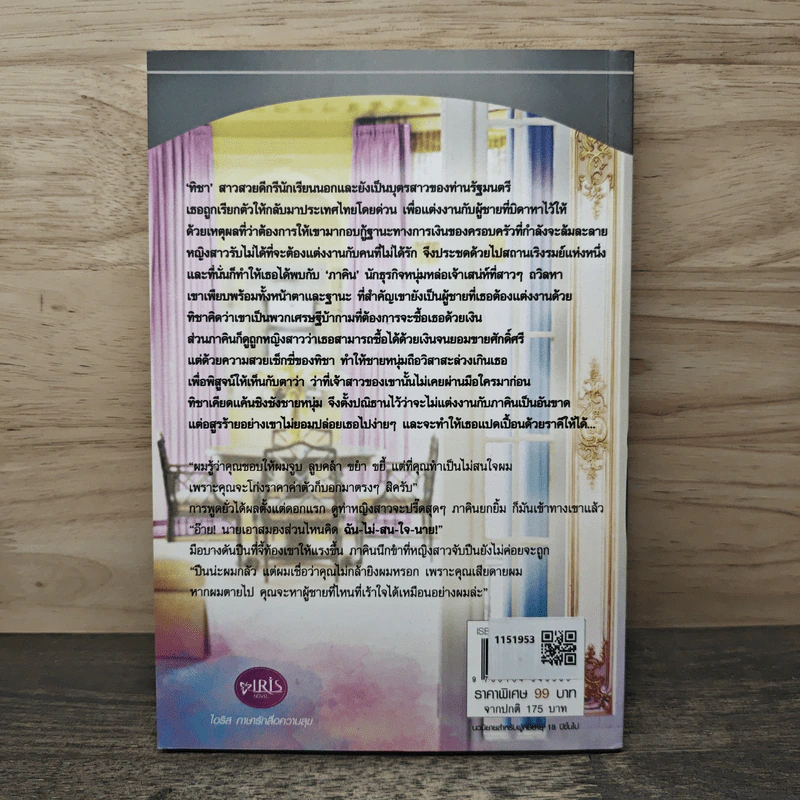 ‘ทิชา’ สาวสวยดีกรีนักเรียนนอกและยังเป็นบุตรสาวของท่านรัฐมนตรี
เธอถูกเรียกตัวให้กลับมาประเทศไทยโดยด่วน เพื่อแต่งงานกับผู้ชายที่บิดาหาไว้ให้
ด้วยเหตุผลที่ว่าต้องการให้เขามากอบกู้ฐานะทางการเงินของครอบครัวที่กำลังจะล้มละลาย
หญิงสาวรับไม่ได้ที่จะต้องแต่งงานกับคนที่ไม่ได้รัก จึงประชดด้วยไปสถานเริงรมย์แห่งหนึ่ง
และที่นั่นก็ทำให้เธอได้พบกับ ‘ภาคิน’ นักธุรกิจหนุ่มหล่อเจ้าเสน่ห์ที่สาวๆ ถวิลหา
เขาเพียบพร้อมทั้งหน้าตาและฐานะ ที่สำคัญเขายังเป็นผู้ชายที่เธอต้องแต่งงานด้วย
ทิชาคิดว่าเขาเป็นพวกเศรษฐีบ้ากามที่ต้องการจะซื้อเธอด้วยเงิน
ส่วนภาคินก็ดูถูกหญิงสาวว่าเธอสามารถซื้อได้ด้วยเงินจนยอมขายศักดิ์ศรี
แต่ด้วยความสวยเซ็กซี่ของทิชา ทำให้ชายหนุ่มถือวิสาสะล่วงเกินเธอ
เพื่อพิสูจน์ให้เห็นกับตาว่า ว่าที่เจ้าสาวของเขานั้นไม่เคยผ่านมือใครมาก่อน
ทิชาเคียดแค้นชิงชังชายหนุ่ม จึงตั้งปณิธานไว้ว่าจะไม่แต่งงานกับภาคินเป็นอันขาด
แต่อสูรร้ายอย่างเขาไม่ยอมปล่อยเธอไปง่ายๆ และจะทำให้เธอแปดเปื้อนด้วยราคีให้ได้...
“ผมรู้ว่าคุณชอบให้ผมจูบ ลูบคลำ ขยำ ขยี้ แต่ที่คุณทำเป็นไม่สนใจผม
เพราะคุณจะโก่งราคาค่าตัวก็บอกมาตรงๆ สิครับ”
การพูดยั่วได้ผลตั้งแต่ดอกแรก ดูท่าหญิงสาวจะปรี๊ดสุดๆ ภาคินยกยิ้ม ก็มันเข้าทางเขาแล้ว
“อ๊าย! นายเอาสมองส่วนไหนคิด ฉัน-ไม่-สน-ใจ-นาย!”
มือบางดันปืนที่จี้ท้องเขาให้แรงขึ้น ภาคินนึกขำที่หญิงสาวจับปืนยังไม่ค่อยจะถูก
“ปืนน่ะผมกลัว แต่ผมเชื่อว่าคุณไม่กล้ายิงผมหรอก เพราะคุณเสียดายผม
หากผมตายไป คุณจะหาผู้ชายที่ไหนที่เร้าใจได้เหมือนอย่างผมล่ะ”
ISB
1151953
ราคาพิเศษ 99 บาท
จากปกติ 175 บาท
IRIS
NOVEL
ไอริส ภาษารักสื่อความสุข